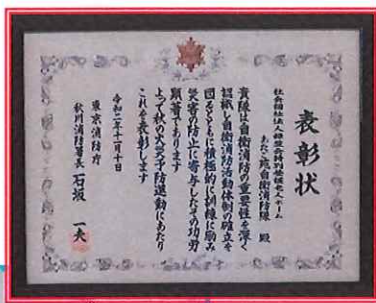 表彰状
社会福祉法人緑愛会特別養護老人ホーム
自衛消防隊 殿
貴隊は自衛消防の重要性を深く
認識し自衛消防活動体制の確立を
図るとともに積極的に訓練に励み
災害の防止に寄与したその功労
顕著であります
よって秋の火災予防運動にあたり
これを表彰します
令和二年十一月十日
東京消防庁
秋川消防署長 石坂 一夫